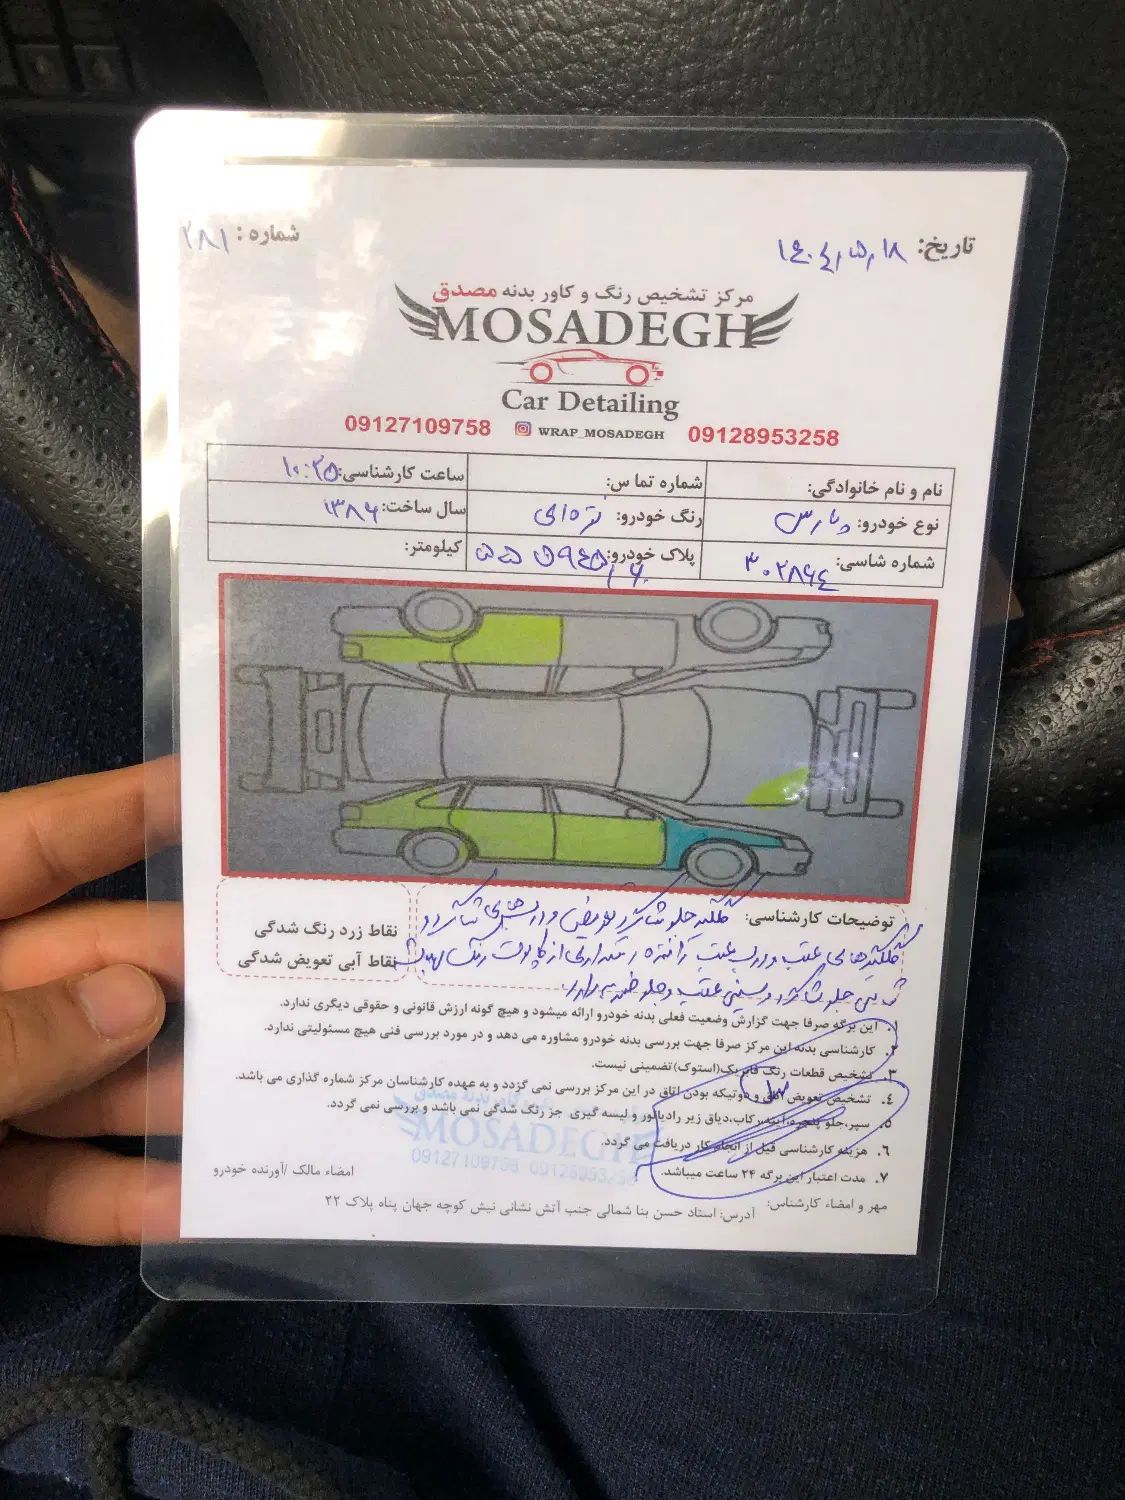 تاریخ: ۱۴۰۴٫۵٫۱۸
شماره: ۲۸۱
مرکز تشخیص رنگ و کاور بدنه مصدق
MOSADEGH
Car Detailing
09127109758 WRAP_MOSADEGH 09128953258
نام و نام خانوادگی: شماره تماس: ساعت کارشناسی: ۱۰:۲۵
نوع خودرو: پارس رنگ خودرو: نقره‌ای سال ساخت: ۱۳۸۶
شماره شاسی: ۳۰۲۸۶۴ پلاک خودرو: کیلومتر:
توضیحات کارشناسی: گلگیر جلو شاگرد تعویض و درب‌های شاگرد و
گلگیرهای عقب و درب عقب راننده رنگ دارای از کاپوت رنگ
جلو شاگرد و سینی عقب و جلو ضربه دارد
نقاط زرد رنگ شدگی
نقاط آبی تعویض شدگی
۱. این برگه صرفا جهت گزارش وضعیت فعلی بدنه خودرو ارائه میشود و هیچ گونه ارزش قانونی و حقوقی دیگری ندارد.
۲. کارشناسی بدنه این مرکز صرفا جهت بررسی بدنه خودرو مشاوره می دهد و در مورد بررسی فنی هیچ مسئولیتی ندارد.
۳. تشخیص قطعات رنگ فابریک(استوک)تضمینی نیست.
۴. تشخیص تعویض اتاق و دوتیکه بودن اتاق در این مرکز بررسی نمی گردد و به عهده کارشناسان مرکز شماره گذاری می باشد.
۵. سپر،جلو پنجره،آینه،رکاب،دیاق زیر رادیاتور و لیسه گیری جز رنگ شدگی نمی باشد و بررسی نمی گردد.
۶. هزینه کارشناسی قبل از انجام کار دریافت می گردد.
۷. مدت اعتبار این برگه ۲۴ ساعت میباشد.
مهر و امضاء کارشناس: امضاء مالک /آورنده خودرو
MOSADEGH
09127109758 09128953258
آدرس: استاد حسن بنا شمالی جنب آتش نشانی نبش کوچه جهان پناه پلاک ۲۲